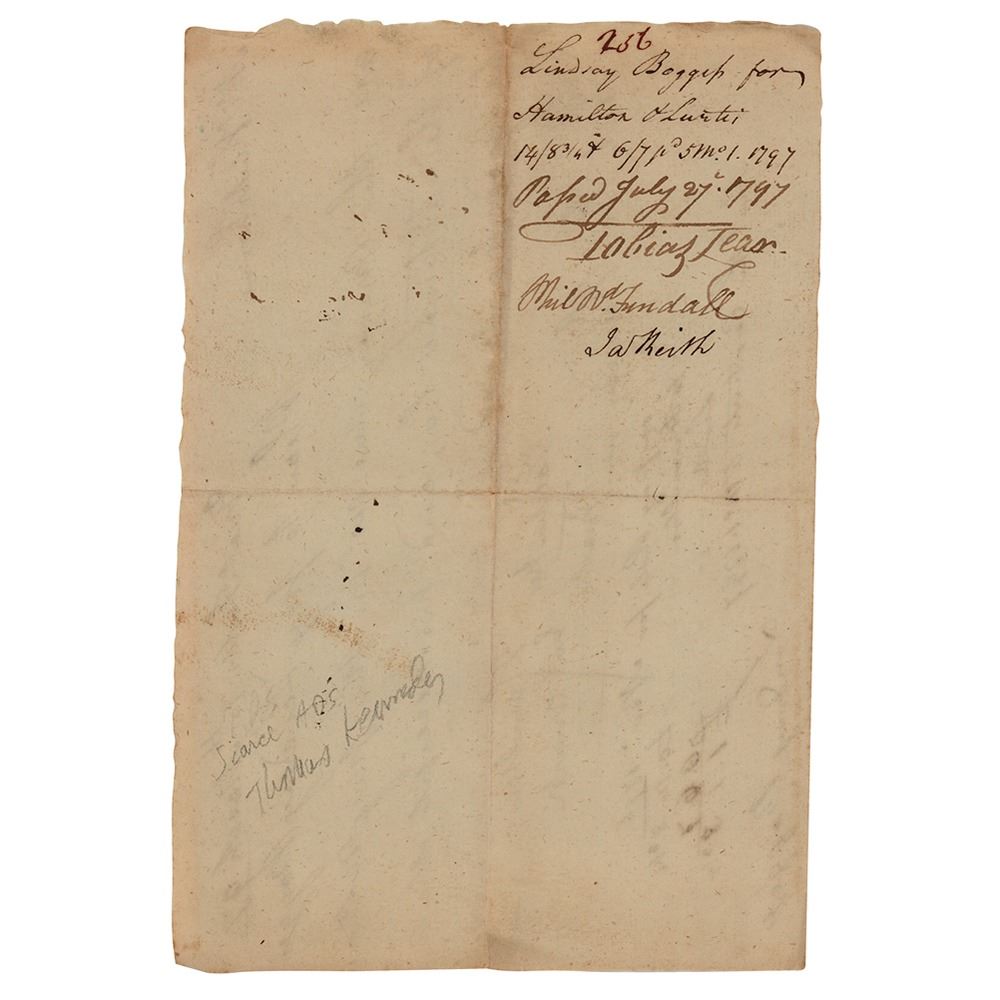 256
Lindsay Boggess for
Hamilton &
14/8 3/4 & 6/7 pd 5 Mo. 1. 1797
Passed July 27. 1797
Tobias Lear
Phil Rd. Fendall
Jas Keith
Scarce ADS
Thomas Kennedy